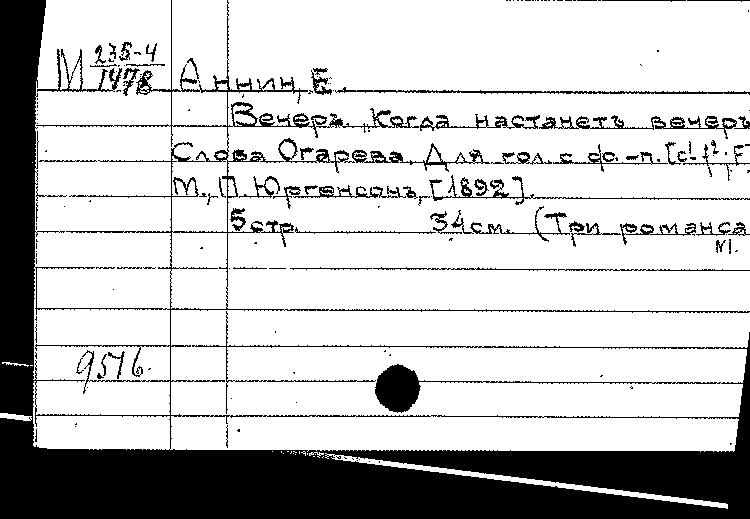 М 235-4/1478 Аннин, Е.
Вечеръ. „Когда настанетъ вечеръ
Слова Огарева. Для гол. с фо.-п. [c¹-f²; F]
М., П. Юргенсонъ, [1892].
5 стр. 34 см. (Три романса
N1.
9516.